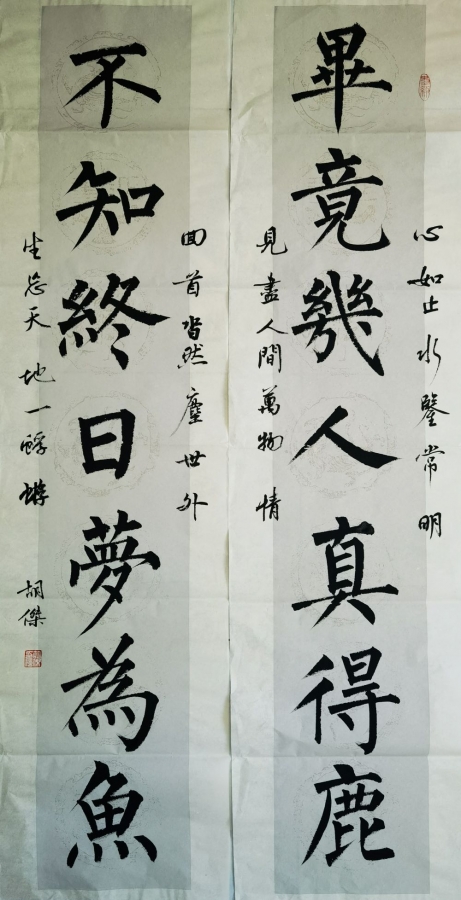 心如止水鑒常明
畢竟幾人真得鹿
見盡人間萬物情
回首然塵世外
不知終日夢為魚
坐忘天地一蜉蝣
胡傑